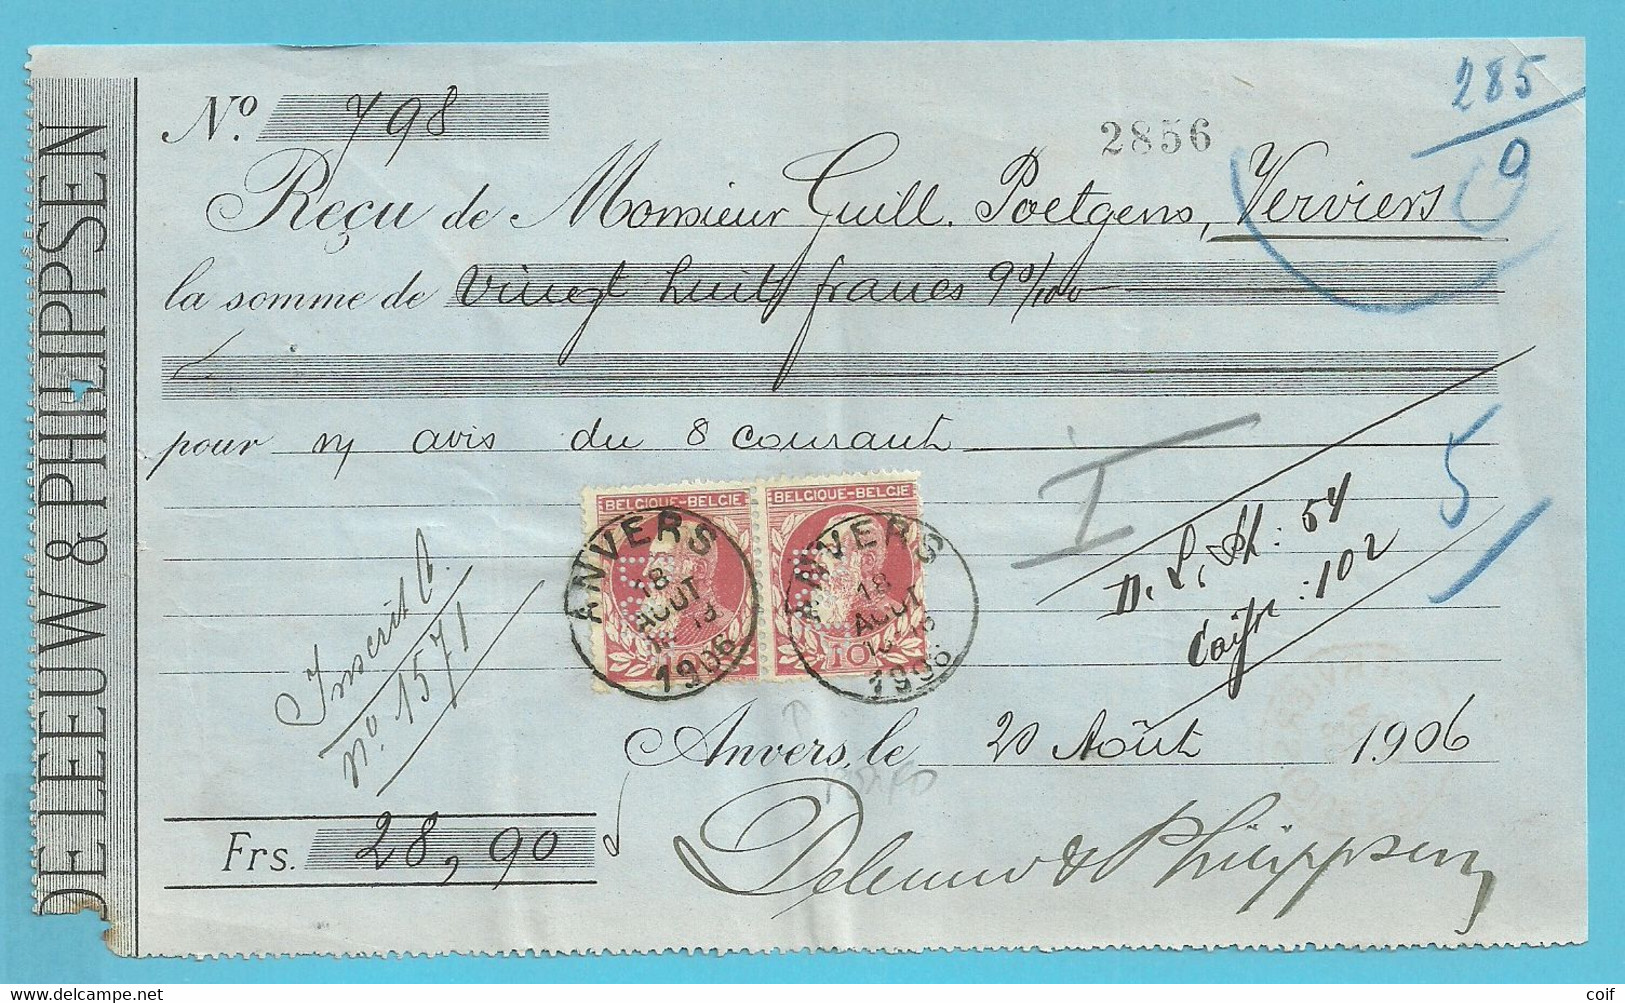 DE LEEUW & PHILIPPSEN
No. 798
2856
285
0
Reçu de Monsieur Guill. Poetgens, Verviers
la somme de Vingt huit francs 90/100
pour n/ avis du 8 courant
I
5
BELGIQUE-BELGIE BELGIQUE-BELGIE
ANVERS
18
AOUT
1906
ANVERS
18
AOUT
1906
10
Inscrit C.
no. 1571
D. L. Ph: 54
: 102
Anvers, le 20 Août 1906
Frs. 28,90
Deleeuw & Philippsen
coif